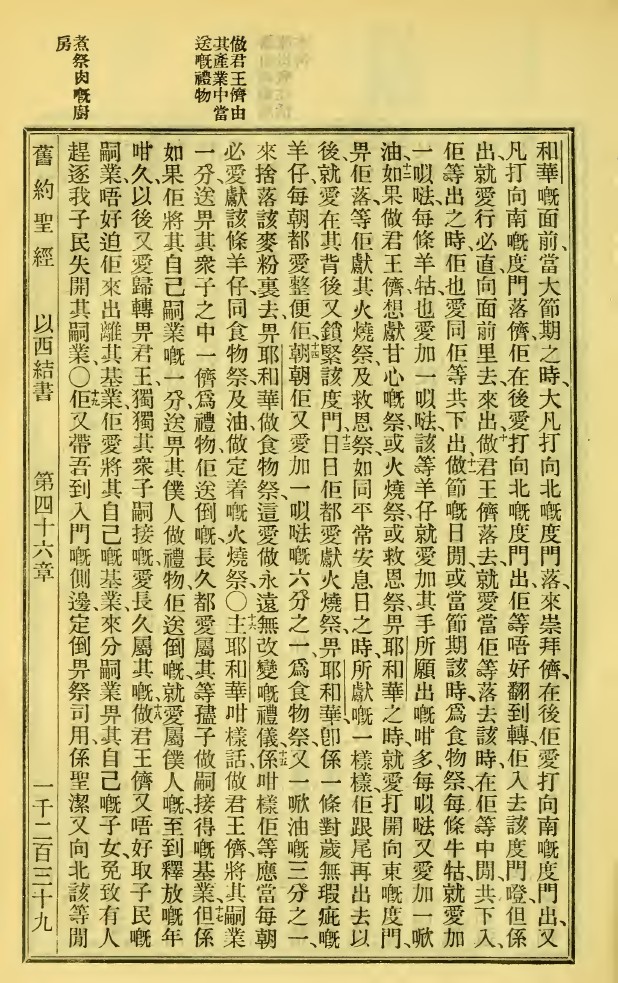 做君王儕由
其產業中當
送嘅禮物
煮祭肉嘅廚
房
和華嘅面前、當大節期之時、大凡打向北嘅度門落來崇拜儕、在後佢愛打向南嘅度門出、又
凡打向南嘅度門落儕、佢在後愛打向北嘅度門出、佢等唔好翻到轉佢入去該度門嘅、但係
出就愛行必直向面前里去來出、十做君王儕落去、就愛當佢等落去該時、在佢等中間共下入、
佢等出之時、佢也愛同佢等共下出、十一做節嘅日閒、或當節期該時、爲食物祭、每條牛牯就愛加
一㕥㗳、每條羊牯也愛加一㕥㗳、該等羊仔就愛加其手所願出嘅咁多、每㕥㗳又愛加一㰸
油、十二如果做君王儕想獻甘心嘅祭、或火燒祭、或救恩祭、畀耶和華之時、就愛打開向東嘅度門、
畀佢落、等佢獻其火燒祭、及救恩祭、如同平常安息日之時所獻嘅一樣樣、佢跟尾再出去、以
後就愛在其背後又鎖緊該度門、十三日日佢都愛獻火燒祭、畀耶和華、卽係一條對歲無瑕疵嘅
羊仔、每朝都愛整便佢、十四朝朝佢又愛加一㕥㗳嘅六分之一、爲食物祭、又一㰸油嘅三分之一、
來捨落該麥粉裏去、畀耶和華做食物祭、這愛做永遠無改變嘅禮儀、十五係咁樣佢等應當每朝
必愛獻該條羊仔、同食物祭、及油、做定着嘅火燒祭、〇十六主耶和華咁樣話、做君王儕、將其嗣業
一分送畀其衆子之中一儕、爲禮物、佢送倒嘅、長久都愛屬其等孻子、做嗣接得嘅基業、十七但係
如果佢將其自己嗣業嘅一分、送畀其僕人做禮物、佢送倒嘅、就愛屬僕人嘅、至到釋放嘅年
咁久、以後又愛歸轉畀君王、獨獨其衆子嗣接嘅、愛長久屬其嘅、十八做君王儕、又唔好取子民嘅
嗣業、唔好迫佢來出離其基業、佢愛將其自己嘅基業、來分嗣業畀其自己嘅子女、免致有人
趕逐我子民失開其嗣業、〇十九佢又帶吾到入門嘅側邊、定倒畀祭司用、係聖潔、又向北該等閒
舊約聖經　以西結書　第四十六章　一千二百三十九